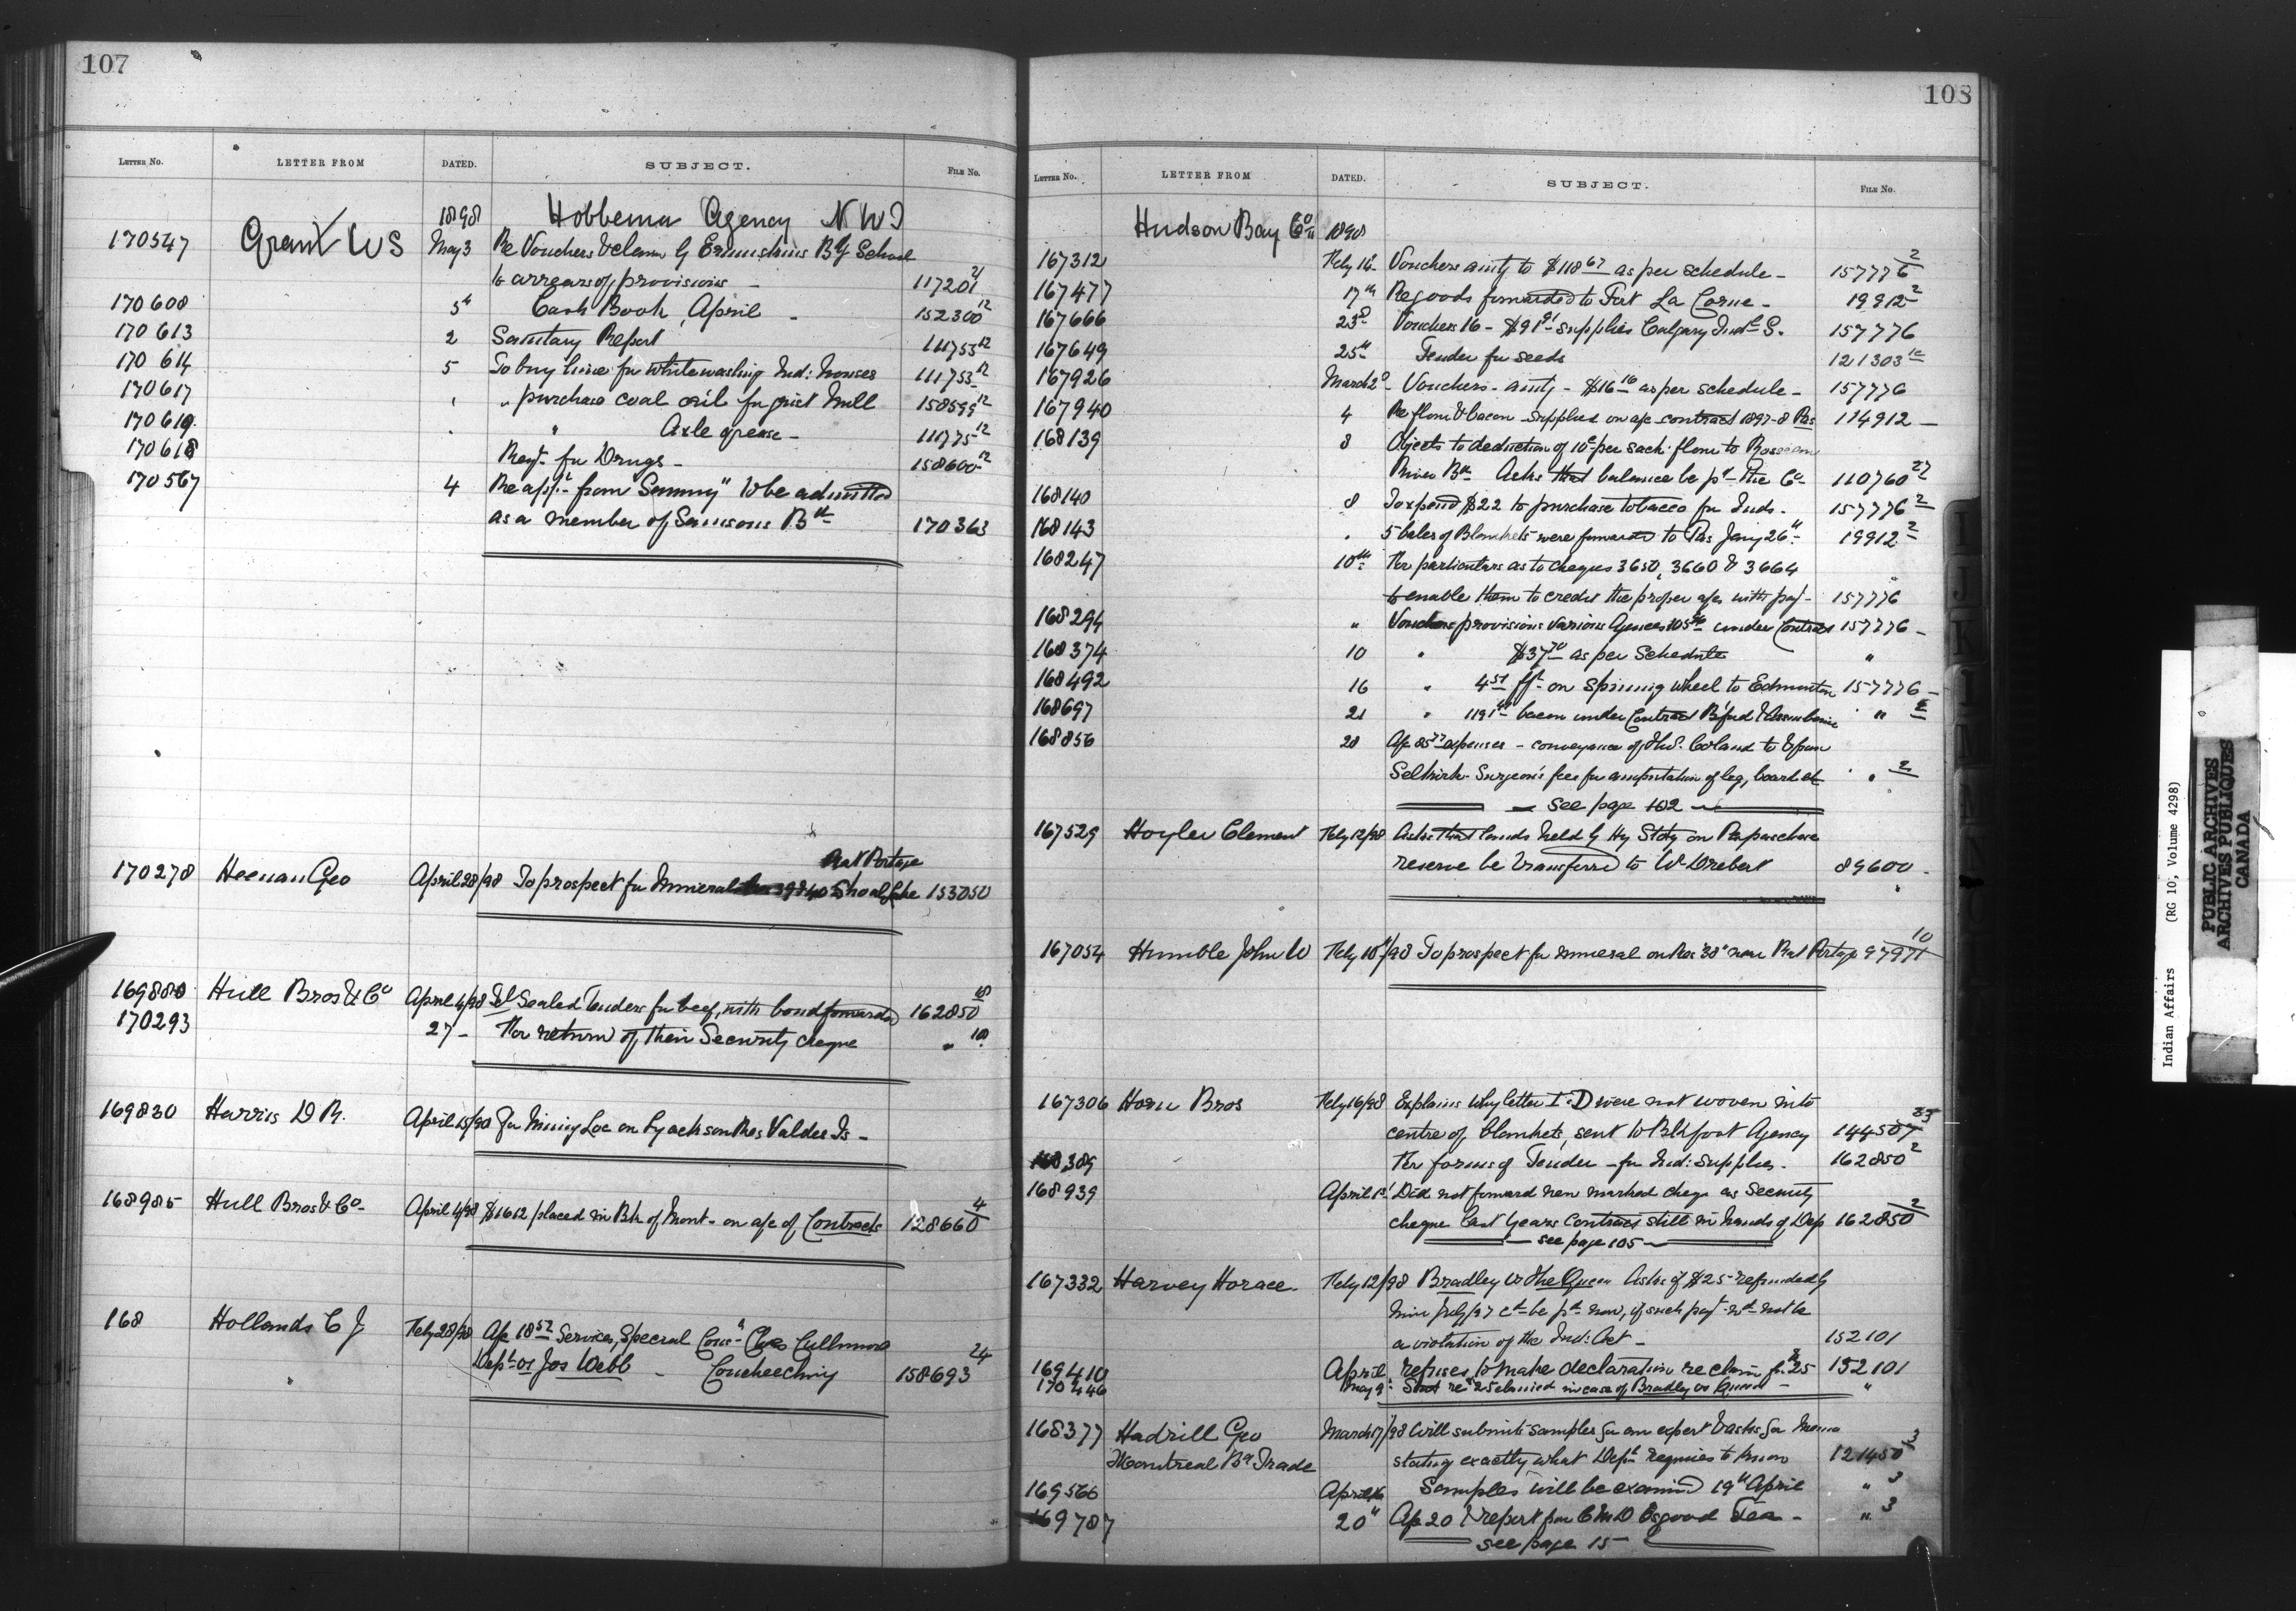 107
LETTER NO. LETTER FROM DATED. SUBJECT. FILE NO.
1898 Hobbema Agency N W T
170547 Grant W S May 3 Re Vouchers & claim of Ermineskins Bdg School
to arrears of provisions - 117201 21
170608 5th Cash Book, April - 152300 12
170613 2 Sanitary Report 111753 12
170614 5 To buy lime for whitewashing Ind: houses 111753 12
170617 " " purchase coal oil for grist Mill 158599 12
170619 " " Axle grease - 111775 12
170618 Reqt for Drugs - 158600 12
170567 4 Re appl from Sammy" to be admitted
as a member of Samsons Bd 170363
Rat Portage
170278 Heenan Geo April 28/98 To prospect for Mineral 39 & 40 Shoal Lake 153050
169880 Hull Bros & Co April 4/98 Sealed Tenders for beef, with bond forwarded 162850 18
170293 27 - For return of their Security cheque " 18
169830 Harris D R. April 15/98 For Mining Loc on Lyackson Res Valdes Is -
168985 Hull Bros & Co - April 4/98 $1612 placed in Bk of Mont - on a/c of Contracts 128660 4
168 Hollands C J Feby 28/98 A/c 18 52 Services, Special Cons Chas Cullmore
Dept vs Jos Webb - Coucheeching 158693 24
108
LETTER NO. LETTER FROM DATED. SUBJECT. FILE NO.
Hudson Bay Co 1898
167312 Feby 16 Vouchers amtg to $118 67 as per schedule - 157776 2
167477 17th Re goods forwarded to Fort La Corne - 19912 2
167666 23d Vouchers 16 - $91 91 supplies Calgary Indl S. 157776
167649 25th Tender for seeds 121303 10
167926 March 2d - Vouchers - amtg - $16 16 as per schedule - 157776
167940 4 Re flour & bacon supplied on a/c contract 1897-8 Pas 114912 -
168139 8 Objects to deduction of 10c per sack: flour to Rosseau
River Bd Asks that balance be pd - the Co 110760 27
168140 8 To expend $22 to purchase tobacco for Inds. 157776 2
168143 " 5 bales of Blankets were forwarded to Pas Jany 26th 19912 2
168247 10th For particulars as to cheques 3650, 3660 & 3664
to enable them to credit the proper a/cs with pay - 157776
168294 " Vouchers provisions various Agencies 105 under Contract 157776 -
168374 10 " $37 70 as per Schedule "
168492 16 " 4 51 frt on spinning wheel to Edmonton 157776 -
168697 21 " 1191 bacon under Contract B'ford & Assiniboine " 2
168856 28 A/c 85 77 expenses - conveyance of to from
Selkirk - Surgeon's fees for amputation of leg, board etc " 2
see page 102
167529 Hoyler Clement Feby 12/98 Asks that lands held by Hy Stoty on Papaschase
reserve be transferred to W Drebert 89600 -
167054 Humble John W Feby 10th/98 To prospect for mineral on Res 38 near Rat Portage 97971 10
167306 Horn Bros Feby 16/98 Explains why letter I. D were not woven into
centre of blankets, sent to Blkfoot Agency 144507 35
168389 For forms of Tender - for Ind: supplies. 162850 2
168939 April 1st Did not forward new marked cheqe as Security
cheque last years contract still in hands of Dep 162850 2
see page 105
167332 Harvey Horace. Feby 12/98 Bradley vs The Queen Asks if $25 refunded by
him July/97 cd be pd now, if such payt wd not be
a violation of the Ind: Act - 152101
169410 April, refuses to make declaration re claim for 25 152101
170446 May 9 re 25 claimed in case of Bradley vs Queen - "
168377 Hadrill Geo March 17/98 Will submit samples for an expert & asks for Memo
Montreal Bd Trade stating exactly what Dept requires to know 121450 3
169566 April 16 Samples will be examined 19th April " 3
169787 20th A/c 20 & report for C M D Osgood Tea - " 3
see page 15
Indian Affairs (RG 10, Volume 4298)
PUBLIC ARCHIVES
ARCHIVES PUBLIQUES
CANADA